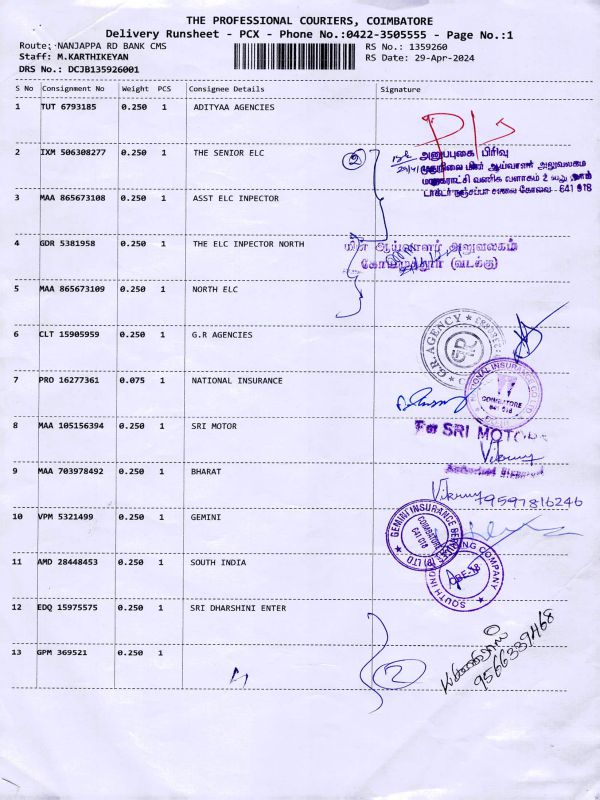 THE PROFESSIONAL COURIERS, COIMBATORE
Delivery Runsheet - PCX - Phone No.:0422-3505555 - Page No.:1
Route: NANJAPPA RD BANK CMS
RS No.: 1359260
Staff: M.KARTHIKEYAN
RS Date: 29-Apr-2024
DRS No.: DCJB135926001
S No Consignment No Weight PCS Consignee Details Signature
1 TUT 6793185 0.250 1 ADITYAA AGENCIES
2 IXM 506308277 0.250 1 THE SENIOR ELC
2
அனுபுகை பிரிவு
மின் ஆய்வாளர் அலுவலகம்
வணிக வளாகம் 2
கோவை - 641 018
3 MAA 865673108 0.250 1 ASST ELC INPECTOR
4 GDR 5381958 0.250 1 THE ELC INPECTOR NORTH
மின் ஆய்வாளர் அலுவலகம்
கோயமுத்தூர் (வடக்கு)
5 MAA 865673109 0.250 1 NORTH ELC
6 CLT 15905959 0.250 1 G.R AGENCIES
G.R. AGENCY
GR
7 PRO 16277361 0.075 1 NATIONAL INSURANCE
COIMBATORE
641 018
8 MAA 105156394 0.250 1 SRI MOTOR
For SRI MOTORS
9 MAA 703978492 0.250 1 BHARAT
79597816246
10 VPM 5321499 0.250 1 GEMINI
GEMINI INSURANCE
COIMBATORE
641 018
11 AMD 28448453 0.250 1 SOUTH INDIA
SOUTH INDIA
COMPANY
CBE-18
12 EDQ 15975575 0.250 1 SRI DHARSHINI ENTER
13 GPM 369521 0.250 1
2
9566339468